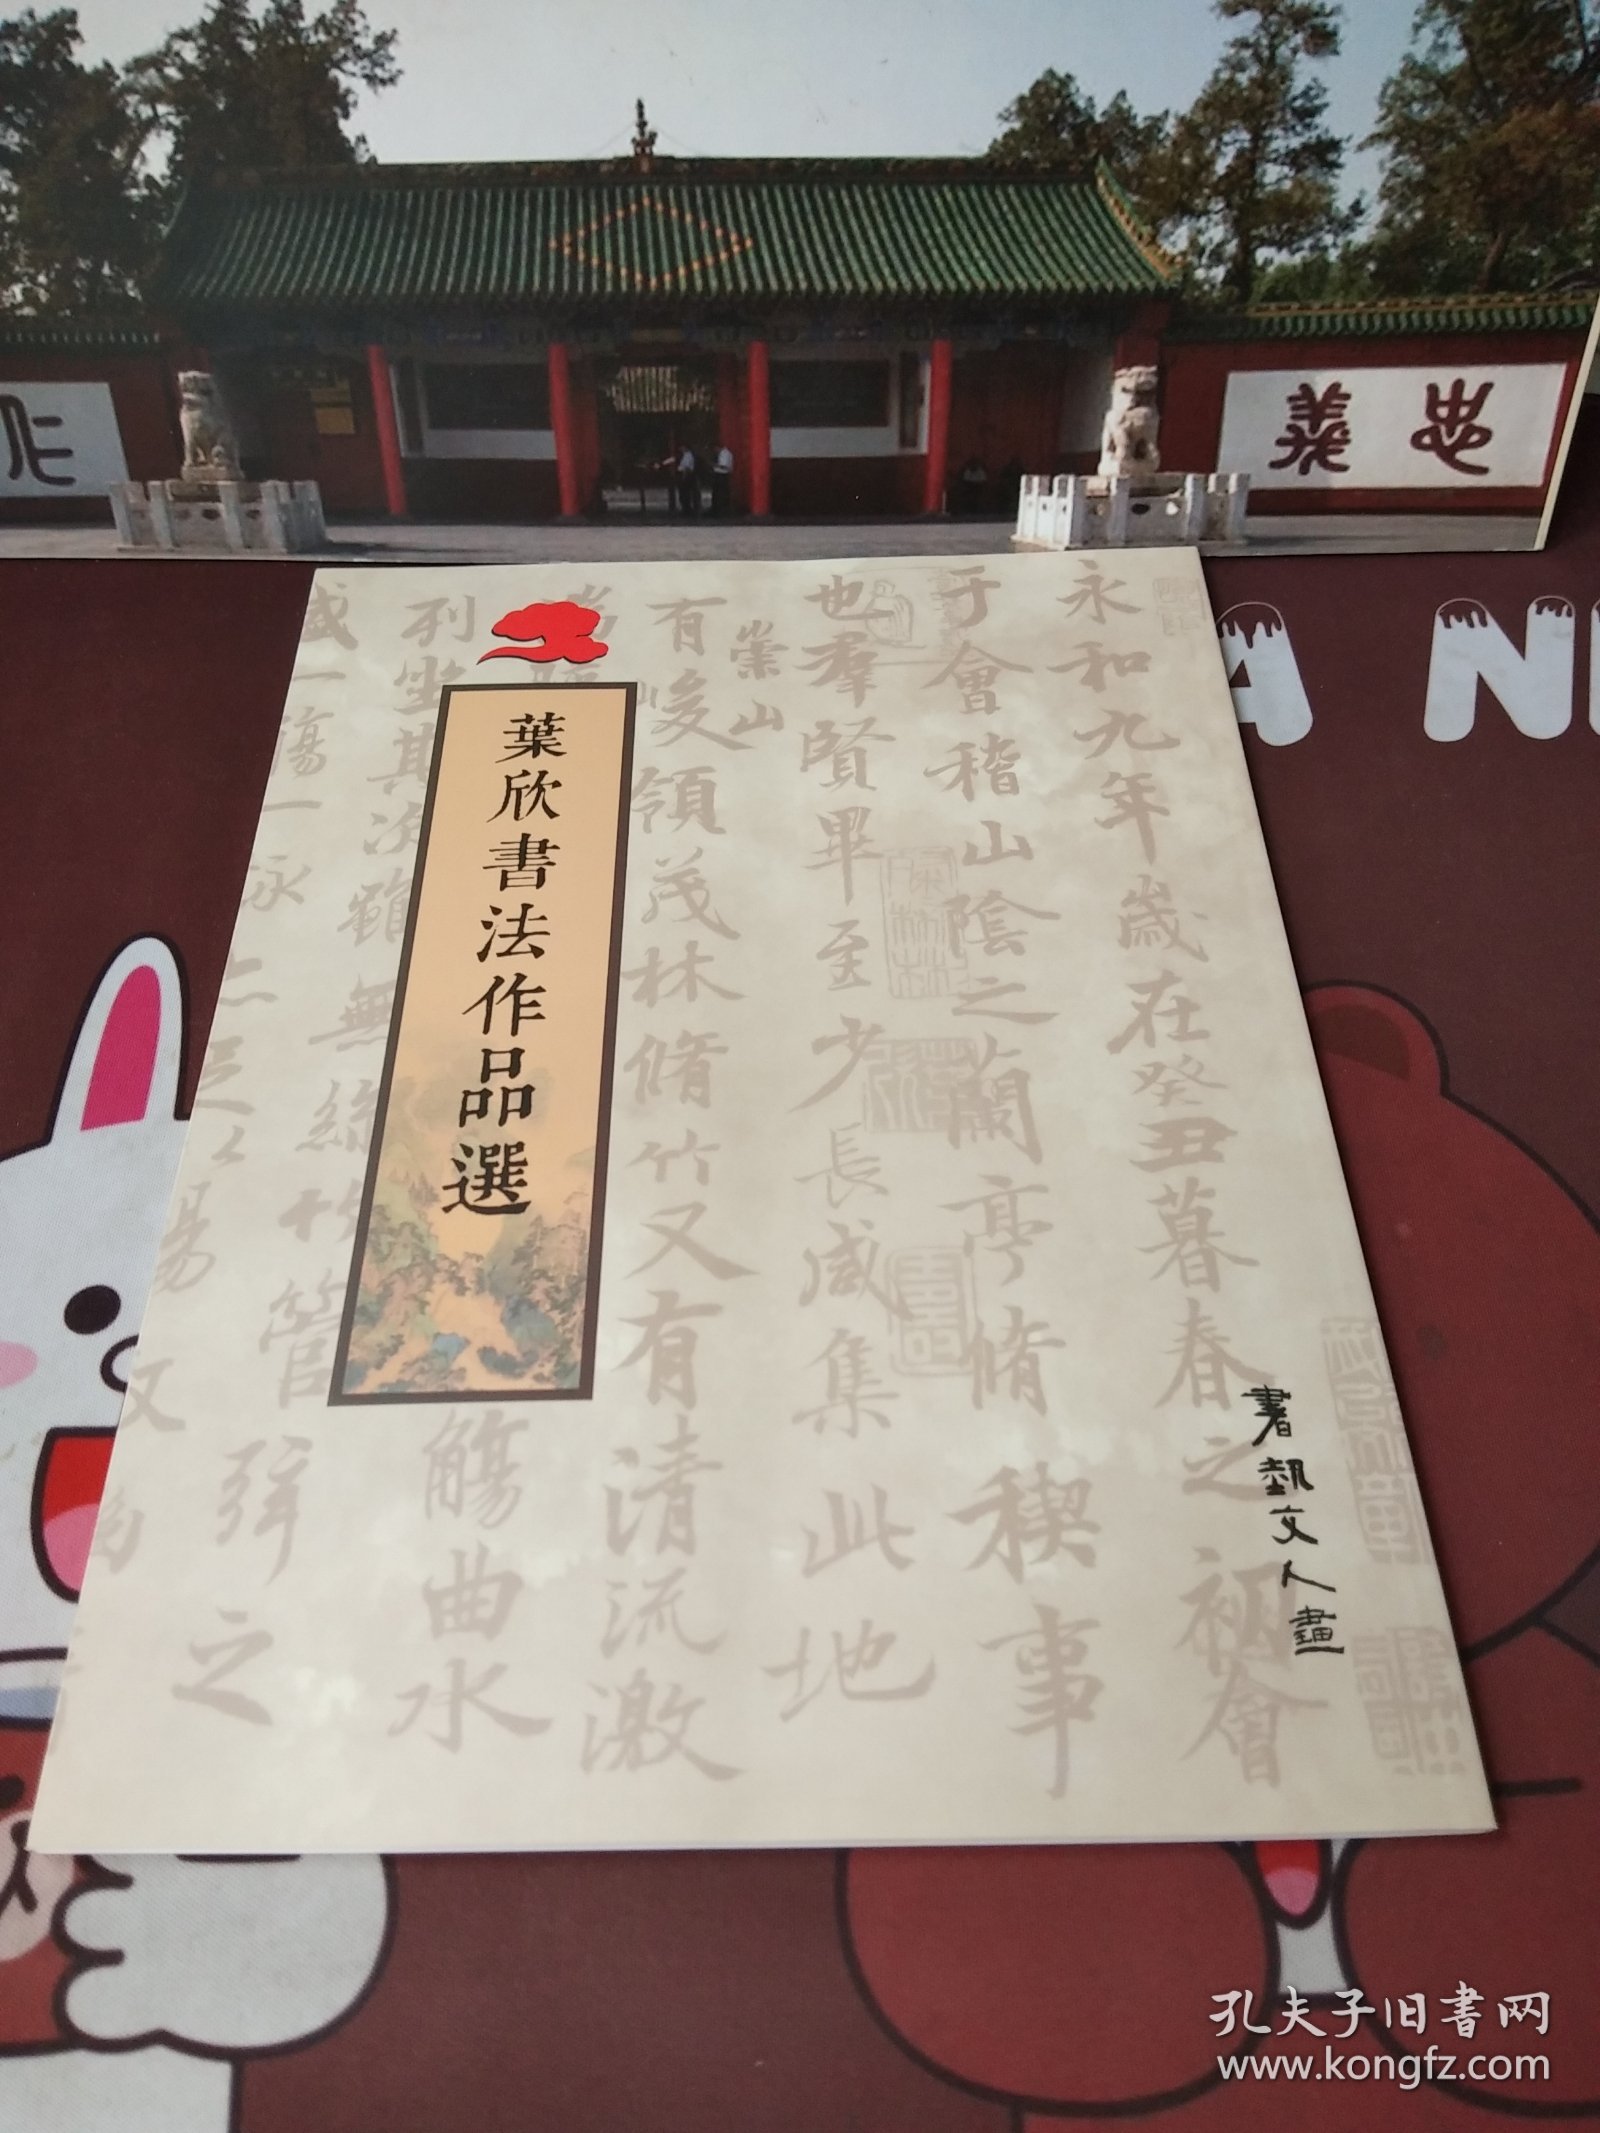 忠義
仁
A N
葉欣書法作品選
永和九年歲在癸丑暮春之初會
于會稽山陰之蘭亭脩稧事
也羣賢畢至少長咸集此地
崇山
有峻領茂林脩竹又有清流激
觴曲水
列坐其次雖無絲竹管弦之
盛一觴一詠
書藝文人畫
孔夫子旧书网
www.kongfz.com